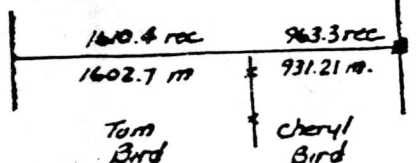 1610.4 rec 963.3 rec
1602.7 m 931.21 m.
Tom Cheryl
Bird Bird